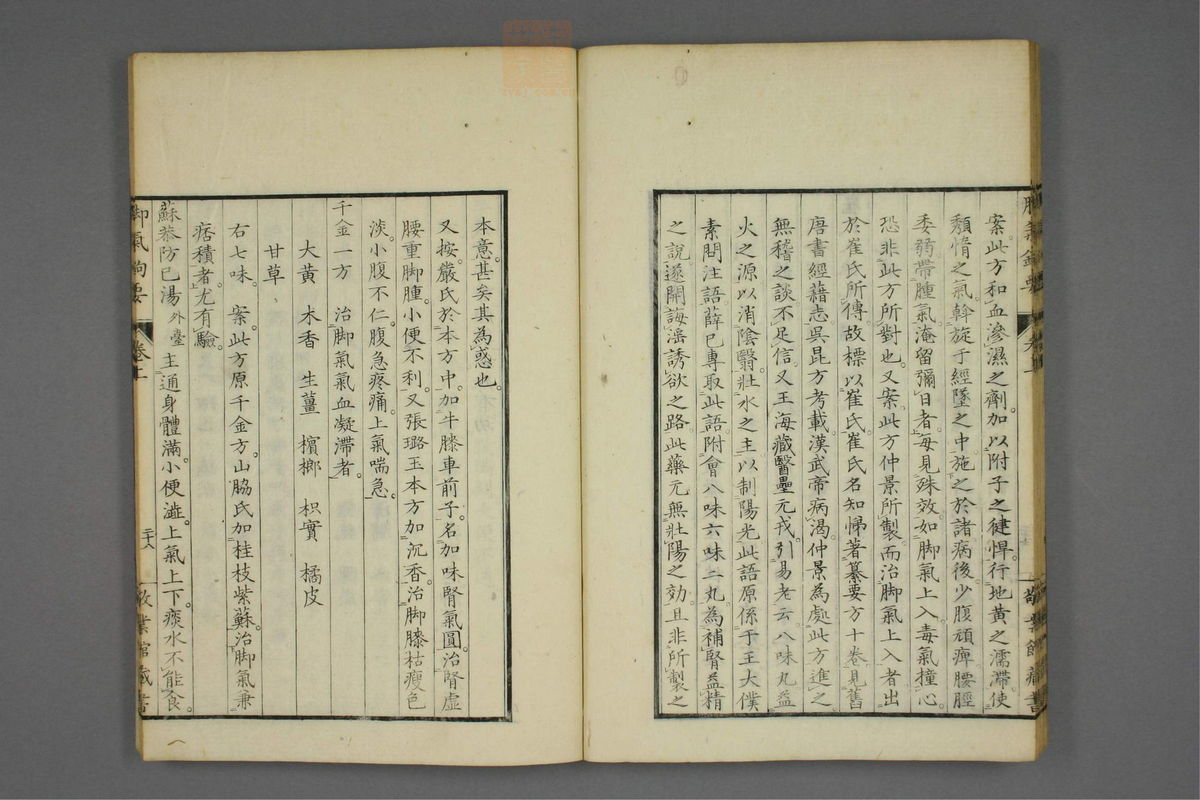 案此方和血滲濕之劑加以附子之健悍行地黃之濡滯使
頽惰之氣斡旋于經墜之中施之於諸病後少腹頑痺腰脛
委弱帶腫氣淹留彌日者每見殊效如脚氣上入毒氣撞心
恐非此方所對也又案此方仲景所製而治脚氣上入者出
於崔氏所傳故標以崔氏崔氏名知悌著纂要方十卷見舊
唐書經藉志吳昆方考載漢武帝病渴仲景為處此方進之
無稽之談不足信又王海藏醫壘元戎引易老云八味丸益
火之源以消陰翳壯水之主以制陽光此語原係于王大僕
素問注語薛已專取此語附會八味六味二丸為補腎益精
之說遂開誨淫誘欲之路此藥元無壯陽之効且非所製之
本意甚矣其為惑也
又按嚴氏於本方中加牛膝車前子名加味腎氣圓治腎虛
腰重脚腫小便不利又張璐玉本方加沉香治脚膝枯瘦色
淡小腹不仁腹急疼痛上氣喘急
千金一方　治脚氣氣血凝滯者
大黃　木香　生薑　檳榔　枳實　橘皮
甘草
右七味　案此方原千金方山脇氏加桂枝紫蘇治脚氣兼
痞積者尤有驗
蘇恭防已湯外臺　主通身體滿小便澁上氣上下痰水不能食
脚氣鉤要　卷上　二十八　敬業館藏書